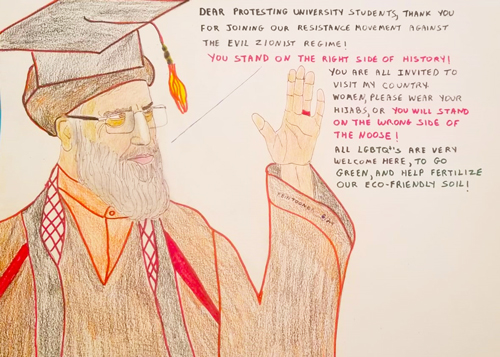 DEAR PROTESTING UNIVERSITY STUDENTS, THANK YOU
FOR JOINING OUR RESISTANCE MOVEMENT AGAINST
THE EVIL ZIONIST REGIME!
YOU STAND ON THE RIGHT SIDE OF HISTORY!
YOU ARE ALL INVITED TO
VISIT MY COUNTRY
WOMEN, PLEASE WEAR YOUR
HIJABS, OR YOU WILL STAND
ON THE WRONG SIDE OF
THE NOOSE!
ALL LGBTQ+'S ARE VERY
WELCOME HERE, TO GO
GREEN, AND HELP FERTILIZE
OUR ECO-FRIENDLY SOIL!